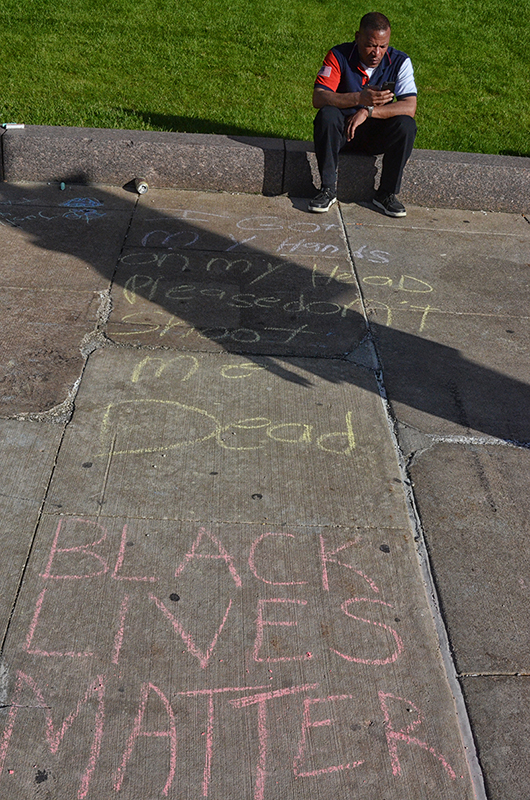 I Got
my Hands
on my Head
Please don't
Shoot
me
Dead
BLACK
LIVES
MATTER